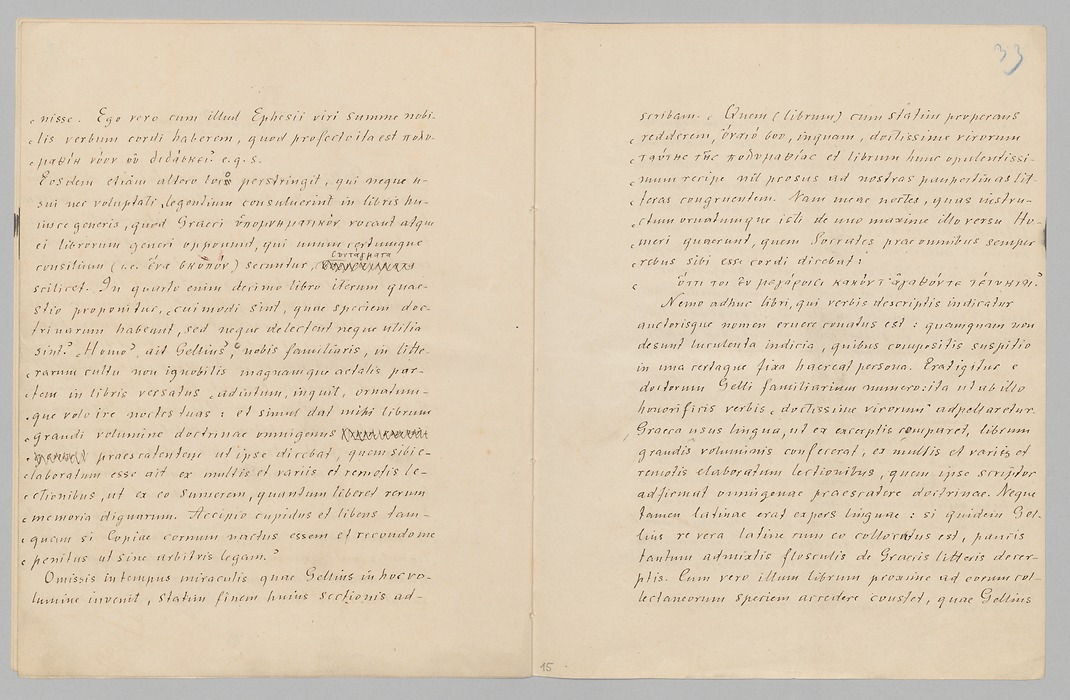 nisse. Ego vero cum illud Ephesii viri summe nobi-
lis verbum cordi haberem, quod profecto ita est πολυ-
μαθίη νόον οὐ διδάσκει? e.q.s.
Eosdem etiam altero loco perstringit, qui neque u-
sui nec voluptati legentium consuluerint in libris hu-
iusce generis, quod Graeci ὑπομνηματικὸν vocant atque
ei librorum generi opponunt, qui unum certumque
consilium (i.e. ἕνα σκοπόν) secuntur, συντάγματα
scilicet. In quarto enim decimo libro iterum quae-
stio proponitur, cuimodi sint, quae speciem doc-
trinarum habeant, sed neque delectent neque utilia
sint? "Homo", ait Gellius, "nobis familiaris, in litte-
rarum cultu non ignobilis magnamque aetatis par-
tem in libris versatus "adiutum, inquit, ornatum-
que volo ire noctes tuas": et simul dat mihi librum
grandi volumine doctrinae omnigenus
praescatentem ut ipse dicebat, quem sibi e-
laboratum esse ait ex multis et variis et remotis le-
ctionibus, ut ex eo sumerem, quantum liberet rerum
memoria dignarum. Accipio cupidus et libens tam-
quam si Copiae cornum nactus essem et recondo me
penitus ut sine arbitris legam."
Omissis in tempus miraculis quae Gellius in hoc vo-
lumine invenit, statim finem huius sectionis ad-
15
33
scribam. "Quem (librum) cum statim properans
redderem, ὄναιό σου, inquam, doctissime virorum
ταύτης τῆς πολυμαθίας et librum hunc opulentissi-
mum recipe nil prosus ad nostras paupertinas lit-
teras congruentem. Nam meae noctes, quas instru-
ctum ornatumque isti de uno maxime illo versu Ho-
meri quaerunt, quem Socrates prae omnibus semper
rebus sibi esse cordi dicebat:
ὅττι τοι ἐν μεγάροισι κακόν τ' ἀγαθόν τε τέτυκται."
Nemo adhuc libri, qui verbis descriptis indicatur
auctorisque nomen eruere conatus est: quamquam non
desunt luculenta indicia, quibus compositis suspitio
in una certaque fixa haereat persona. Erat igitur e
doctorum Gelli familiarium numero: ita ut ab illo
honorificis verbis "doctissime virorum" adpellaretur.
Graeca usus lingua, ut ex excerptis comparet, librum
grandis voluminis confecerat, ex multis et variis et
remotis elaboratum lectionibus, quem ipse scriptor
adfirmat omnigenae praescatere doctrinae. Neque
tamen latinae erat expers linguae: si quidem Gel-
lius re vera latine cum eo collocutus est, paucis
tantum admixtis flosculis de Graecis litteris decer-
ptis. Cum vero illum librum proxime ad eorum col-
lectaneorum speciem accedere constet, quae Gellius